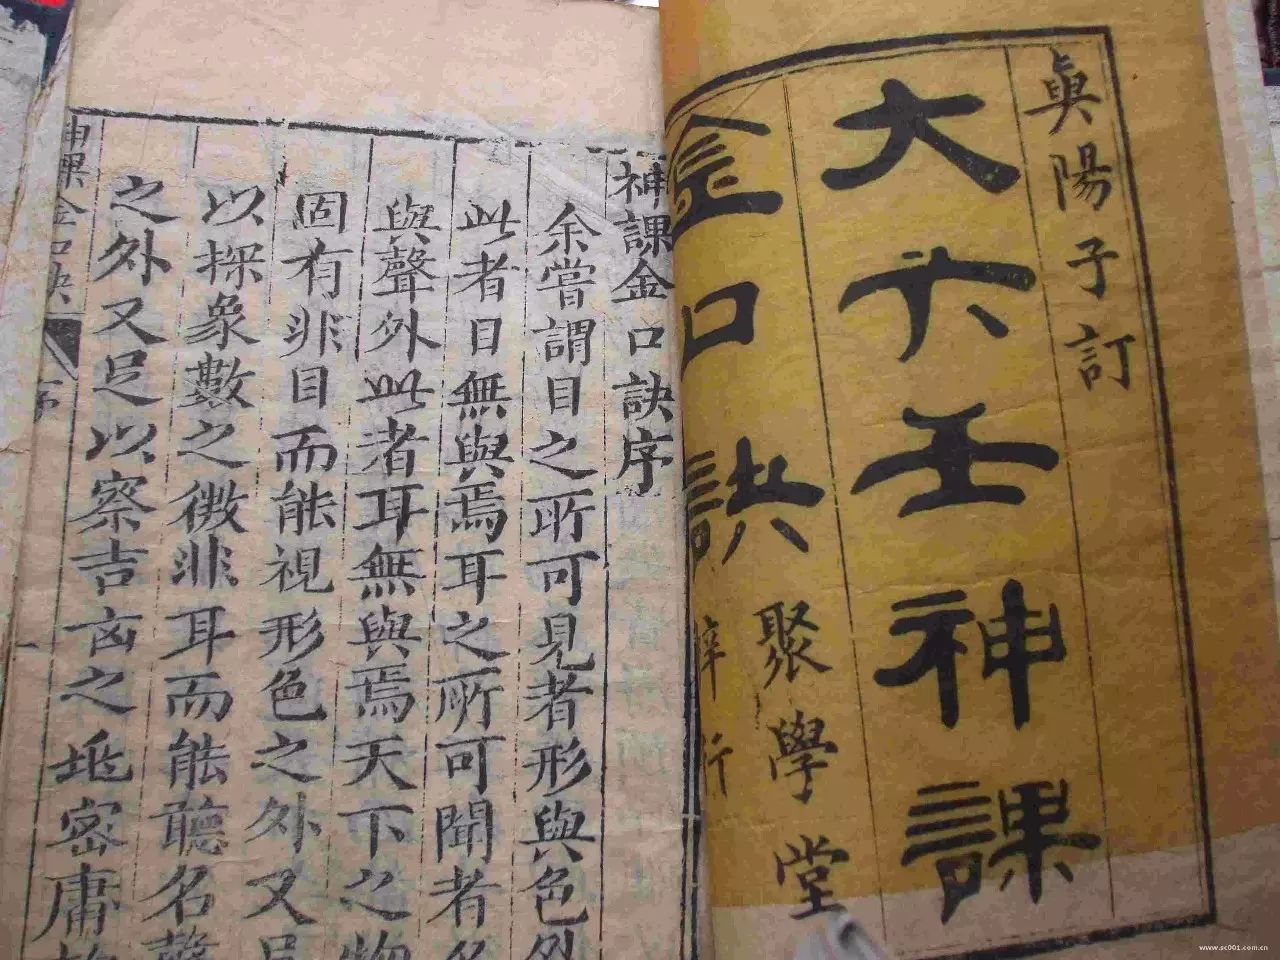 眞陽子訂
大六壬神課
金口訣
聚學堂
梓行
神課金口訣序
余嘗謂目之所可見者形與色外
此者目無與焉耳之所可聞者名
與聲外此者耳無與焉天下之物
固有非目而能視形色之外又足
以探象數之微非耳而能聽名聲
之外又足以察吉㐫之密庸
神課金口訣
序
www.sc001.com.cn